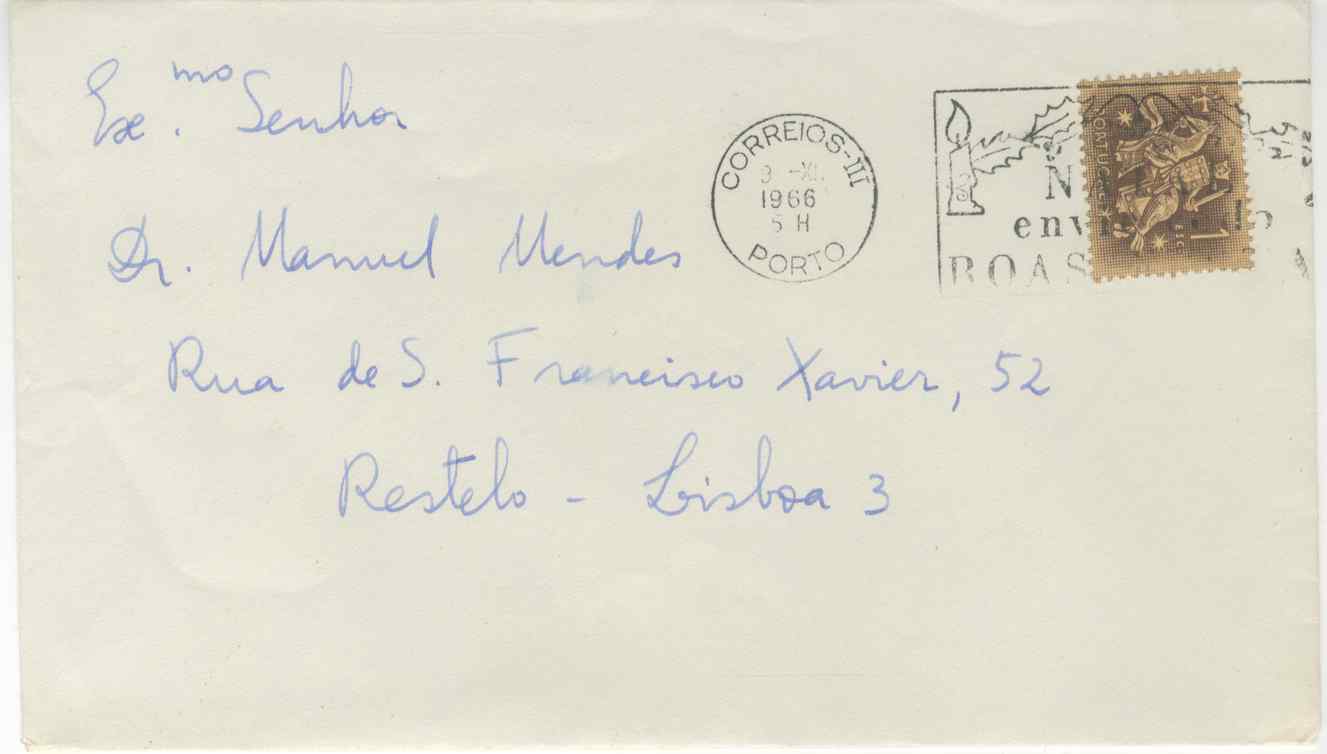 Ex.mo Senhor
Dr. Manuel Mendes
Rua de S. Francisco Xavier, 52
Restelo - Lisboa 3
CORREIOS-III
1966
5 H
PORTO
PORTUGAL
1
BOAS